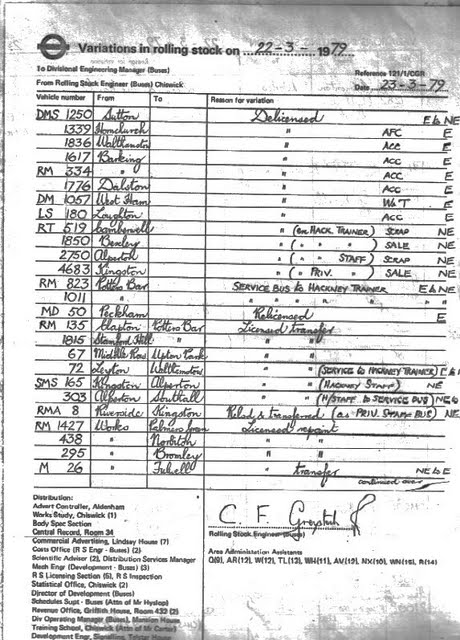 Variations in rolling stock on 22-3- 1979
To Divisional Engineering Manager (Buses)
Reference 121/1/CGR
From Rolling Stock Engineer (Buses) Chiswick
Date 23-3-79
Vehicle number From To Reason for variation
DMS 1250 Sutton Delicensed E & NE
1339 Hornchurch " AFC E
1836 Walthamstow " ACC E
1617 Barking " ACC E
RM 334 " " ACC E
1776 Dalston " ACC E
DM 1057 West Ham " W&T E
LS 180 Loughton " ACC E
RT 519 Camberwell " (ex HACK. TRAINER) SCRAP NE
1850 Bexley " ( " " ) SALE NE
2750 Alperton " ( " STAFF) SCRAP NE
4683 Kingston " ( " PRIV. " ) SALE NE
RM 823 Potters Bar SERVICE BUS to HACKNEY TRAINER E & NE
1011 " " " " " " "
MD 50 Peckham Relicensed E
RM 135 Clapton Potters Bar Licensed transfer
1815 Stamford Hill " " "
67 Middle Row Upton Park " "
72 Leyton Walthamstow " " (SERVICE to HACKNEY TRAINER) E & NE
SMS 165 Kingston Alperton " " (HACKNEY STAFF) NE
303 Alperton Southall " " (H/STAFF to SERVICE BUS) NE & E
RMA 8 Riverside Kingston Relcd & transferred (as PRIV. STAFF BUS) NE
RM 1427 Works Palmers Green Licensed repaint
438 " Norbiton " "
295 " Bromley " "
M 26 " Fulwell " transfer NE & E
continued over
Distribution:
Advert Controller, Aldenham
Works Study, Chiswick (1)
Body Spec Section
Central Record, Room 34
Commercial Advertising, Lindsay House (7)
Costs Office (R S Engr - Buses) (2)
Scientific Adviser (2), Distribution Services Manager
Mech Engr (Development - Buses) (3)
R S Licensing Section (5), R S Inspection
Statistical Office, Chiswick (2)
Director of Development (Buses)
Schedules Supt - Buses (Attn of Mr Hyslop)
Revenue Office, Griffith House, Room 432 (2)
Div Operating Manager (Buses), Mansion House
Training School, Chiswick (Attn of Mr Carter)
Development Engr, Signalling,
C. F.
Rolling Stock Engineer (Buses)
Area Administration Assistants
Q(9), AR(12), W(12), TL(13), WH(11), AV(12), NX(10), WN(15), R(14)